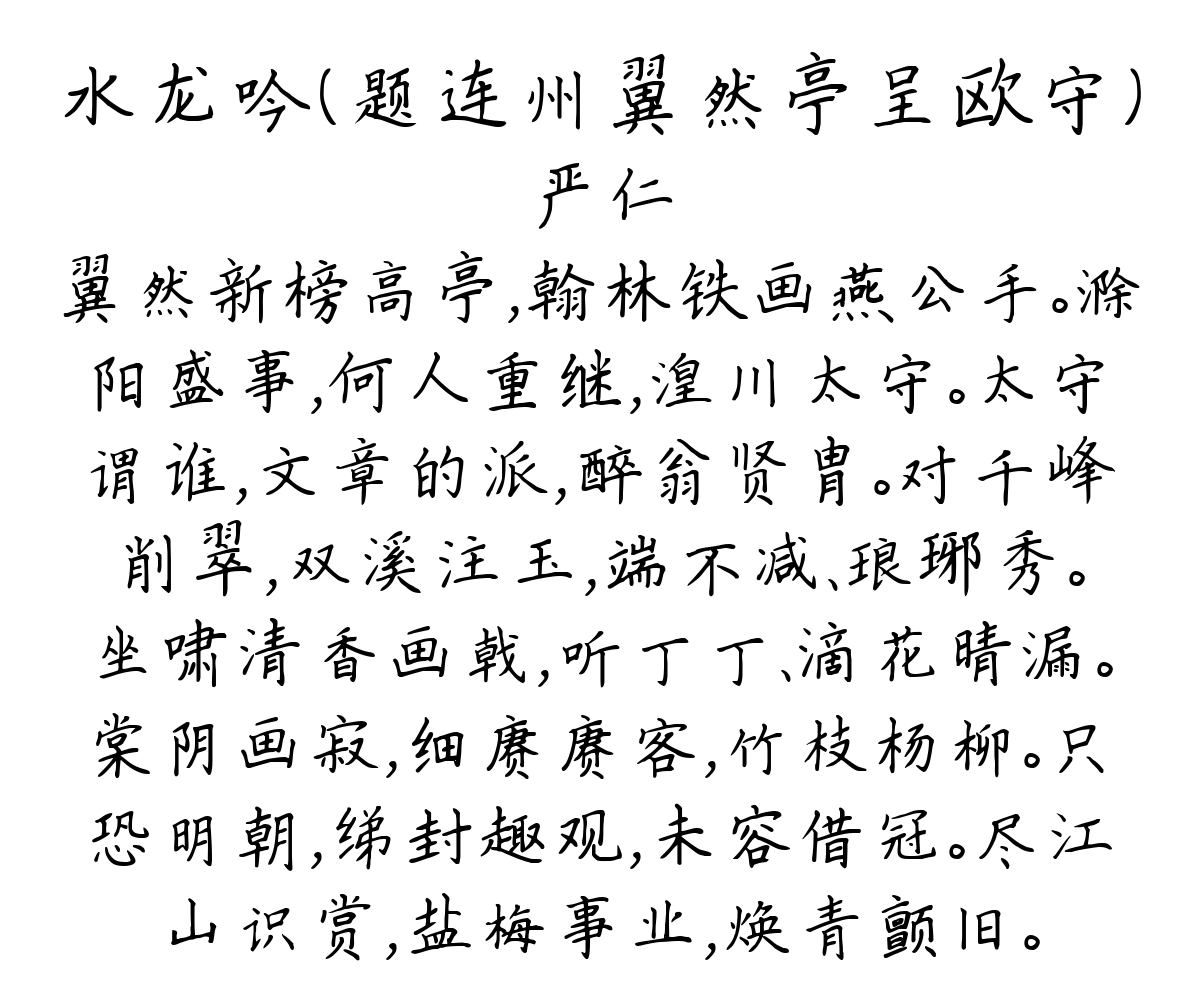 水龙吟(题连州翼然亭呈欧守)
严仁
翼然新榜高亭,翰林铁画燕公手。滁
阳盛事,何人重继,湟川太守。太守
谓谁,文章的派,醉翁贤胄。对千峰
削翠,双溪注玉,端不减、琅琊秀。
坐啸清香画戟,听丁丁、滴花晴漏。
棠阴画寂,细赓赓客,竹枝杨柳。只
恐明朝,绨封趣观,未容借冠。尽江
山识赏,盐梅事业,焕青颤旧。